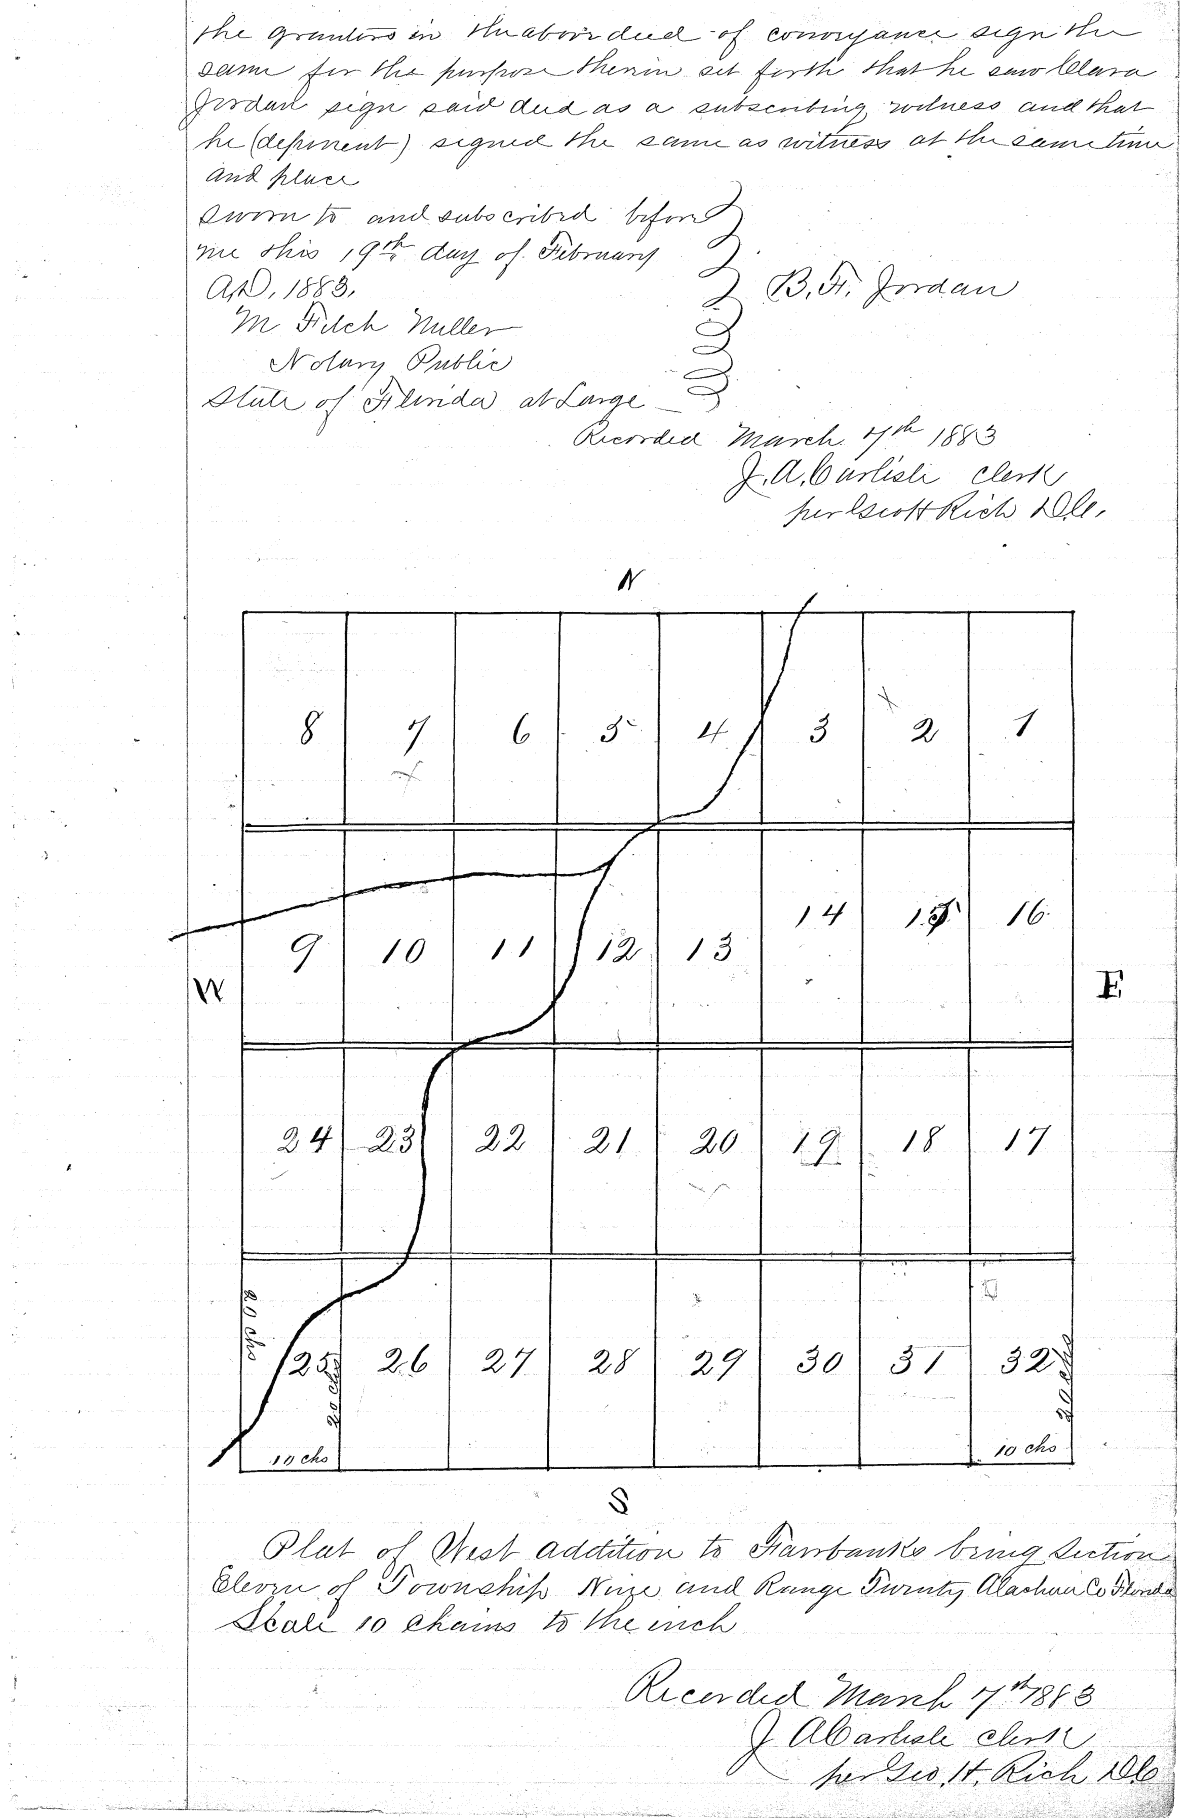 the grantors in the above deed of conveyance sign the
same for the purpose therein set forth that he saw Clara
Jordan sign said deed as a subscribing witness and that
he (deponent) signed the same as witness at the same time
and place
Sworn to and subscribed before
me this 19th day of February
A.D. 1883.
B. F. Jordan
M Fitch Miller
Notary Public
State of Florida at Large
Recorded March 7th 1883
J. A. Carlisle clerk
per Geo H Rich D.C.
N
8 7 6 5 4 3 2 1
9 10 11 12 13 14 15 16
W E
24 23 22 21 20 19 18 17
20 chs
25 26 27 28 29 30 31 32
20 chs 20 chs
10 chs 10 chs
S
Plat of West addition to Fairbanks being Section
Eleven of Township Nine and Range Twenty Alachua Co Florida
Scale 10 chains to the inch
Recorded March 7th 1883
J A Carlisle clerk
per Geo. H. Rich DC